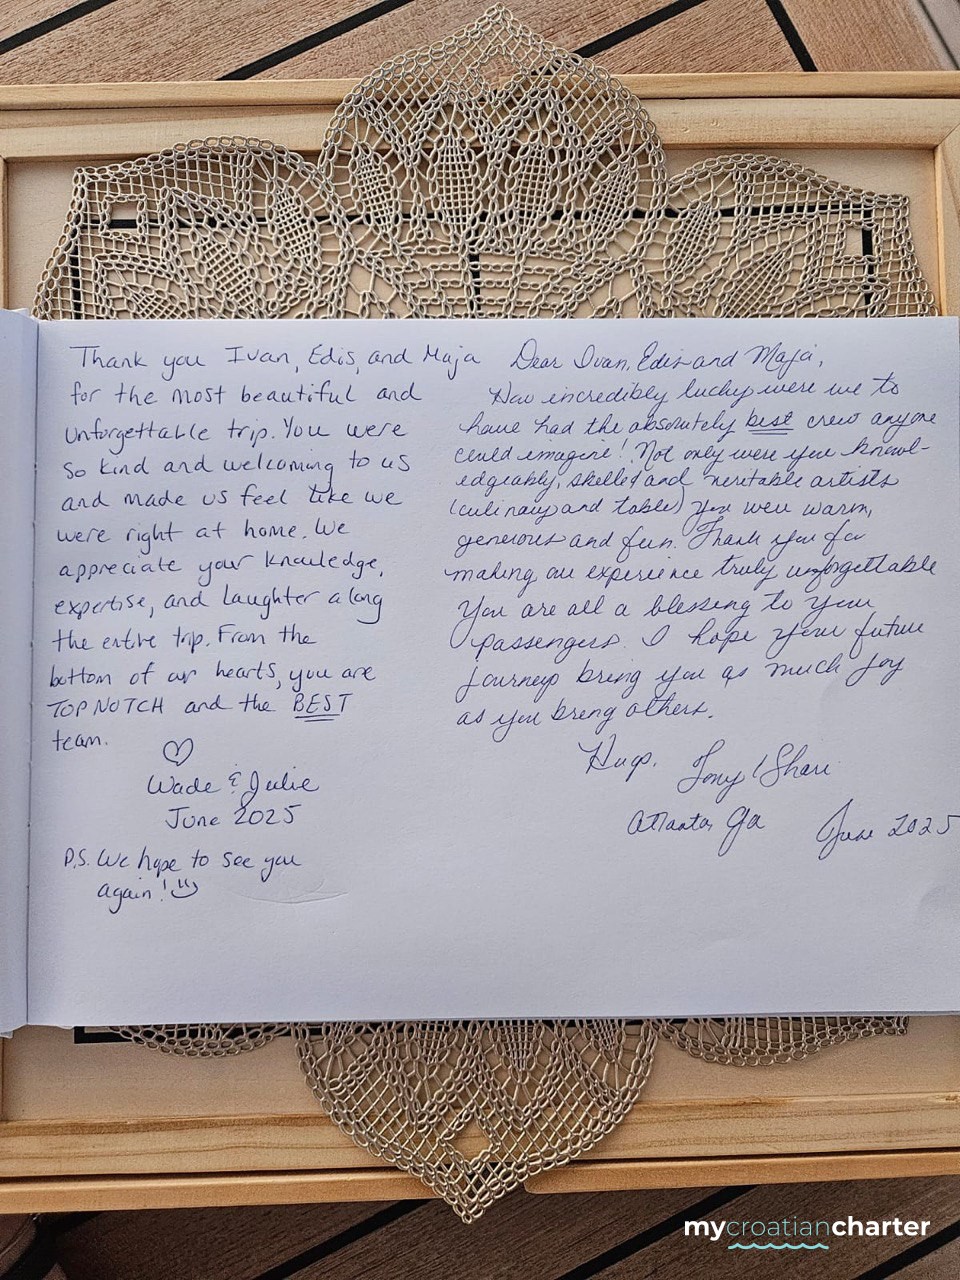 Thank you Ivan, Edis, and Maja
for the most beautiful and
unforgettable trip. You were
so kind and welcoming to us
and made us feel like we
were right at home. We
appreciate your knowledge,
expertise, and laughter along
the entire trip. From the
bottom of our hearts, you are
TOP NOTCH and the BEST
team.
Wade & Julie
June 2025
P.S. We hope to see you
again!
Dear Ivan, Edis and Maja,
How incredibly lucky were we to
have had the absolutely best crew anyone
could imagine! Not only were you knowl-
edgeably, skilled and veritable artists
(culinary and table) you were warm,
generous and fun. Thank you for
making our experience truly unforgettable
You are all a blessing to your
passengers. I hope your future
journeys bring you as much joy
as you bring others.
Hugs, Tony / Shari
Atlanta, Ga June 2025
mycroatiancharter